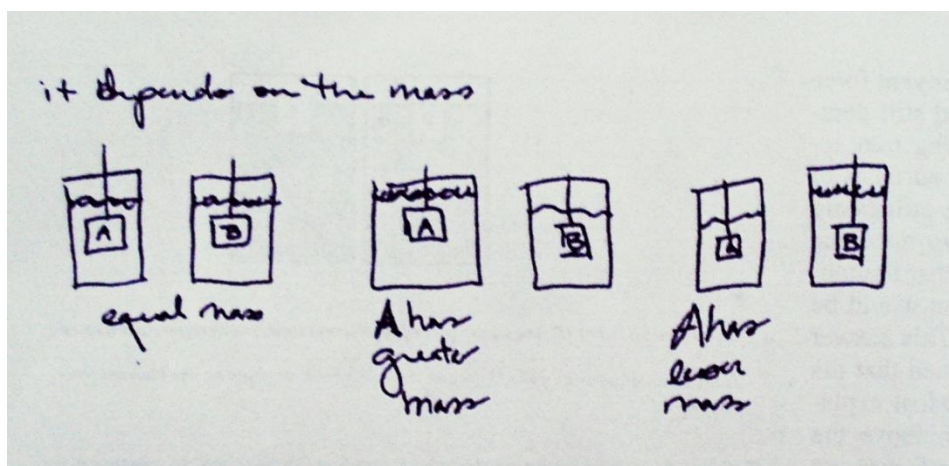 it depends on the mass
A
B
A
B
A
B
equal mass
A has
greater
mass
A has
lesser
mass